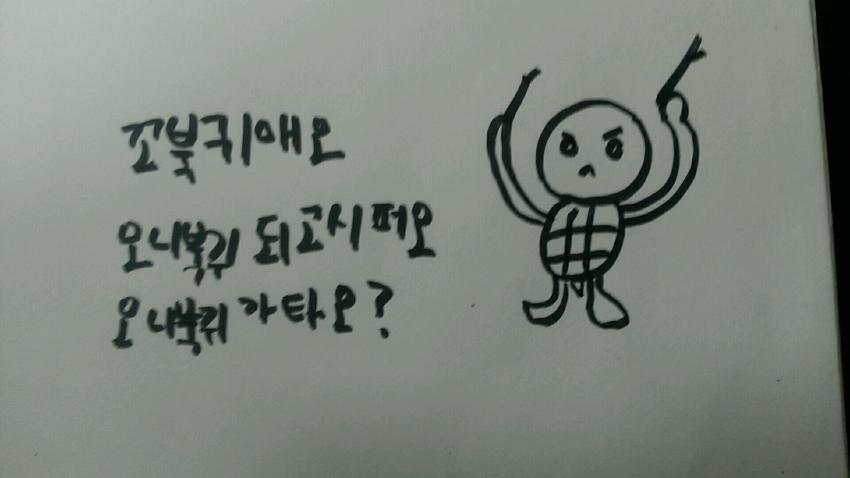 꼬북귀애오
오니북뀌 되고시퍼오
오니북뀌 가타오?